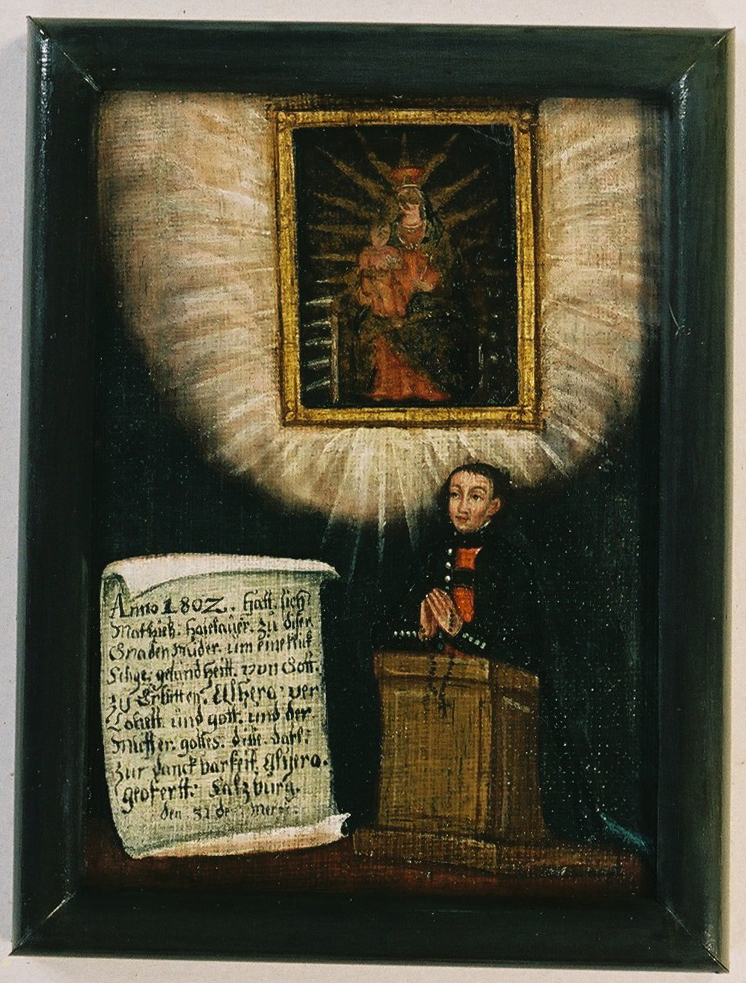 Anno 1802. Hatt. sich
Mathieb. zu diser
Gnaden muder. um eine
gesundheitt. von Gott.
zu Erbitten. Alhero: ver
Lobett. und gott. und der
Mutter. gottes. disse. dafl:
zur danckbarkeit. Alhero.
geofertt: Salzburg.
den 31 de: Mertz: